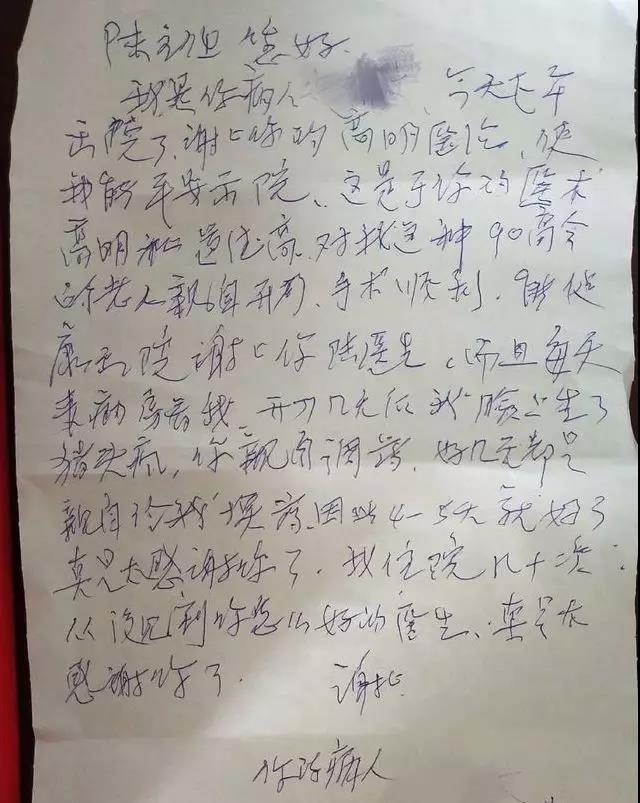 陆主任 您好.
我是你病人 今天下午
出院了,谢谢你的高明医治,使
我能平安出院、这是于你的医术
高明和道德高、对我这种90高令
的老人亲自开刀、手术顺利,能健
康出院谢谢你陆医生,而且每天
来病房看我、开刀几天后我脸上生了
猪头疯,你亲自调药,好几天都是
亲自给我换药,因此4-5天就好了
真是太感谢你了.我住院几十次.
从没见到你怎么好的医生、真是太
感谢你了. 谢谢
你的病人